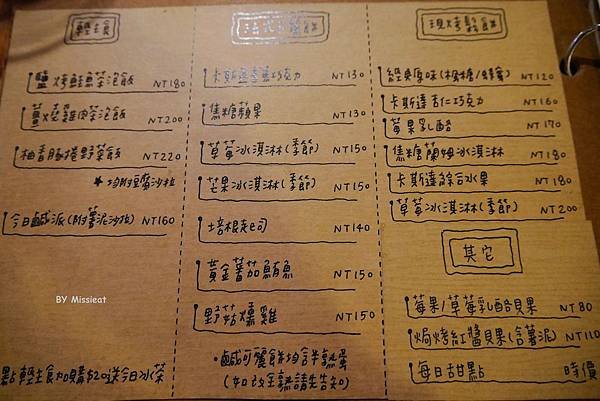 輕主食
鹽烤鮭魚茶泡飯 NT180
薑燒雞肉茶泡飯 NT200
柚香豚捲野菜飯 NT220
★均附豆腐沙拉
今日鹹派(附薯泥沙拉) NT160
點輕主食加購$20送今日冰茶
法式可麗餅
卡斯達香蕉巧克力 NT130
焦糖蘋果 NT130
草莓冰淇淋(季節) NT150
芒果冰淇淋(季節) NT150
培根起司 NT140
黃金蕃茄鮪魚 NT150
野菇燻雞 NT150
•鹹可麗餅均含半熟蛋
(如改全熟請先告知)
現烤鬆餅
經典原味(楓糖/蜂蜜) NT120
卡斯達杏仁巧克力 NT160
莓果乳酪 NT170
焦糖蘭姆冰淇淋 NT180
卡斯達綜合水果 NT180
草莓冰淇淋(季節) NT200
其它
莓果/草莓乳酪貝果 NT80
焗烤紅醬貝果(含薯泥) NT110
每日甜點 時價
BY Missieat